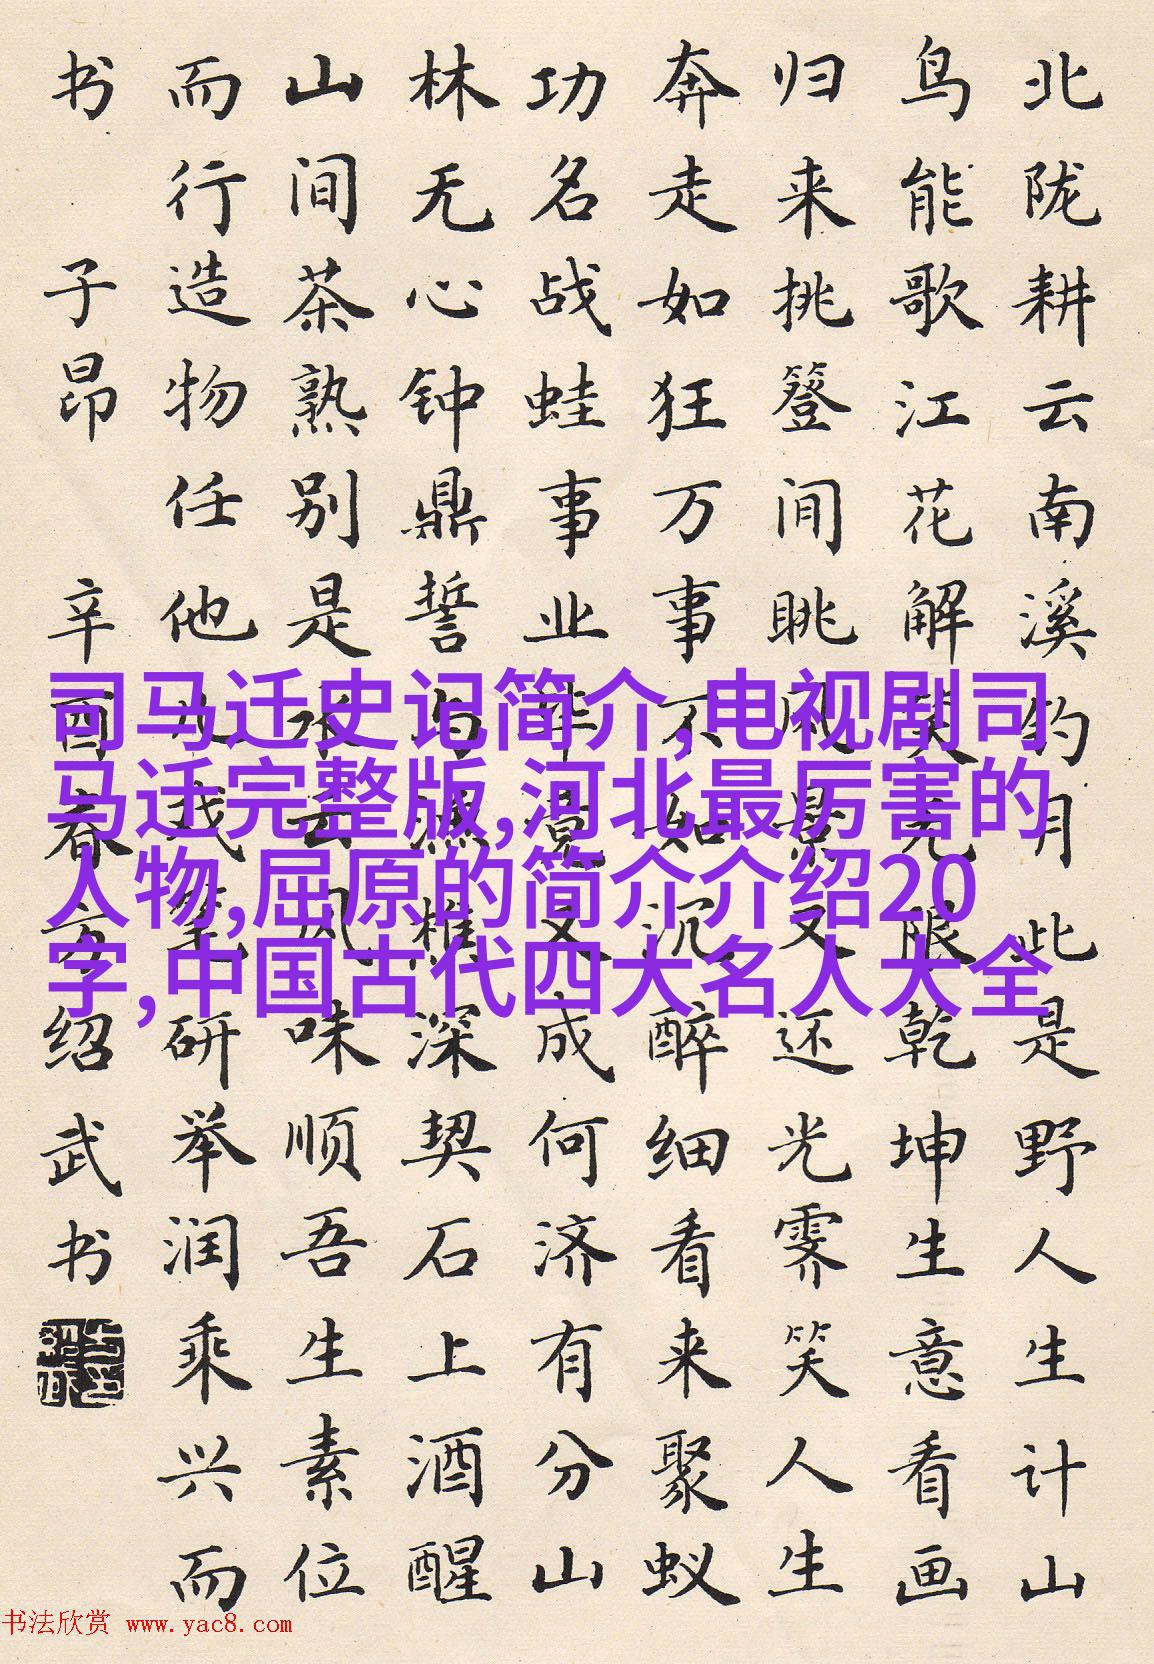 北陇耕云南溪钓月此是野人生计山
鸟能歌江花解笑无限乾坤生意看画
归来挑簦间眺风景又还光霁笑人生
奔走如狂万事不如沉醉细看来聚蚁
功名战蛙事业毕竟又成何济有分山
林无心钟鼎誓与渔樵深契石上酒醒
山间茶熟别是水云风味顺吾生素位
而行造物任他研举润乘兴而
书 子昂 辛酉春方绍武书
司马迁史记简介,电视剧司
马迁完整版,河北最厉害的
人物,屈原的简介介绍20
字,中国古代四大名人大全
书法欣赏 www.yac8.com